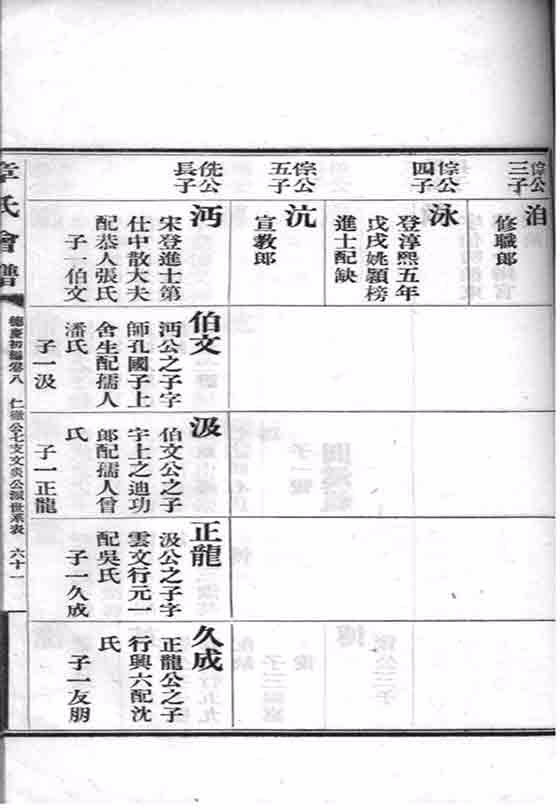 倧公
三子
洎
修職郎
倧公
四子
泳
登淳熙五年
戊戌姚頴榜
進士配缺
倧公
五子
沆
宣教郎
侁公
長子
沔
宋登進士第
仕中散大夫
配恭人張氏
子一伯文
伯文
沔公之子字
師孔國子上
舍生配孺人
潘氏
子一汲
汲
伯文公之子
字上之迪功
郎配孺人曾
氏
子一正龍
正龍
汲公之子字
雲文行元一
配吳氏
子一久成
久成
正龍公之子
行興六配沈
氏
子一友朋
章氏會譜
德慶初編卷八
仁徹公七支文炎公派世系表
六十一